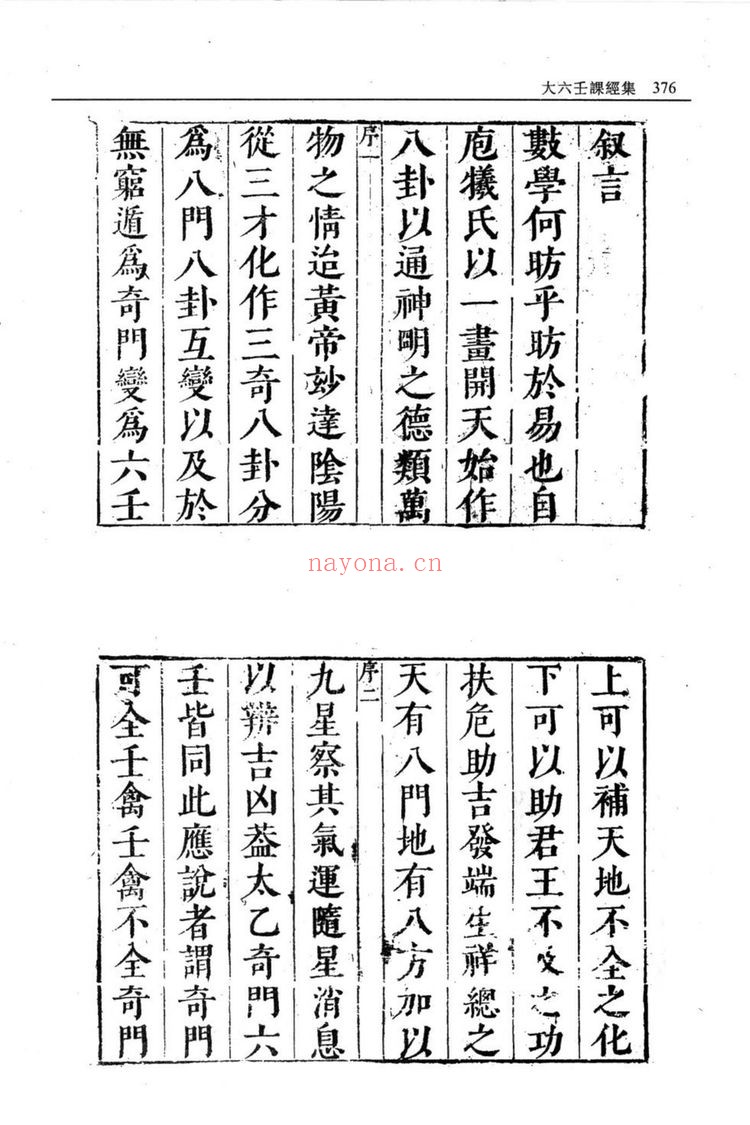 大六壬課經集 376
叙言
數學何昉乎昉於易也自
庖犧氏以一畫開天始作
八卦以通神明之德類萬
序一
物之情迨黃帝妙達陰陽
從三才化作三奇八卦分
爲八門八卦互變以及於
無窮遁爲奇門變爲六壬
nayona.cn
上可以補天地不全之化
下可以助君王不及之功
扶危助吉發端生祥總之
天有八門地有八方加以
序二
九星察其氣運隨星消息
以辨吉凶葢太乙奇門六
壬皆同此應說者謂奇門
可全壬禽壬禽不全奇門